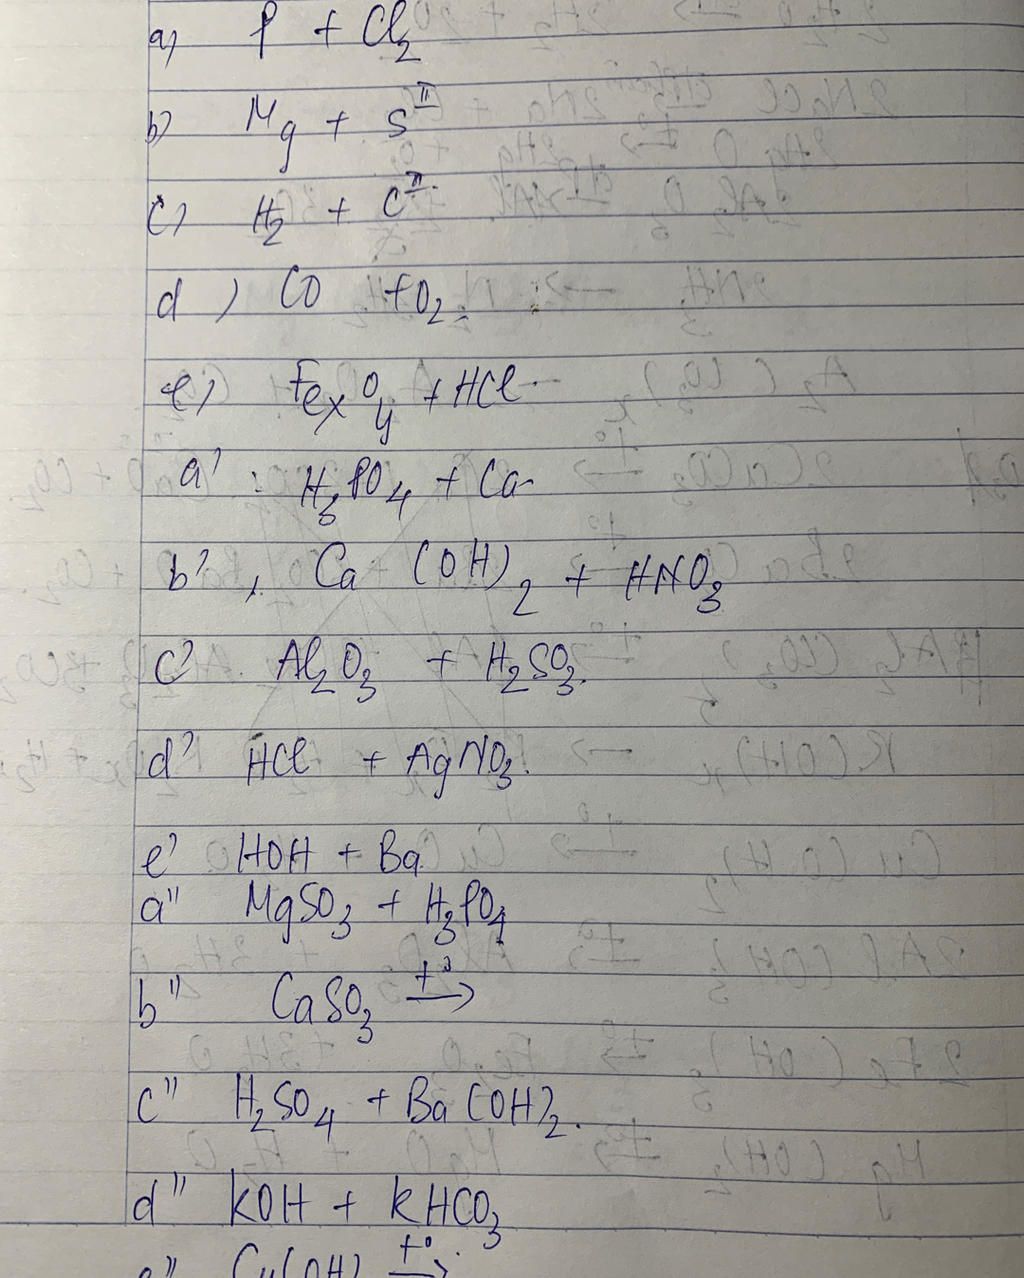 a) P + Cl₂
b) Mg + S^II
c) H₂ + C^II
d ) CO + O₂
e) FexOy + HCl
a' : H₃PO₄ + Ca
b' , Ca (OH)₂ + HNO₃
c' Al₂O₃ + H₂SO₃.
d' HCl + AgNO₃.
e' HOH + Ba
a" MgSO₃ + H₃PO₄
b" CaSO₃ t° →
c" H₂SO₄ + Ba(OH)₂.
d" KOH + KHCO₃
e" Cu(OH) t° →